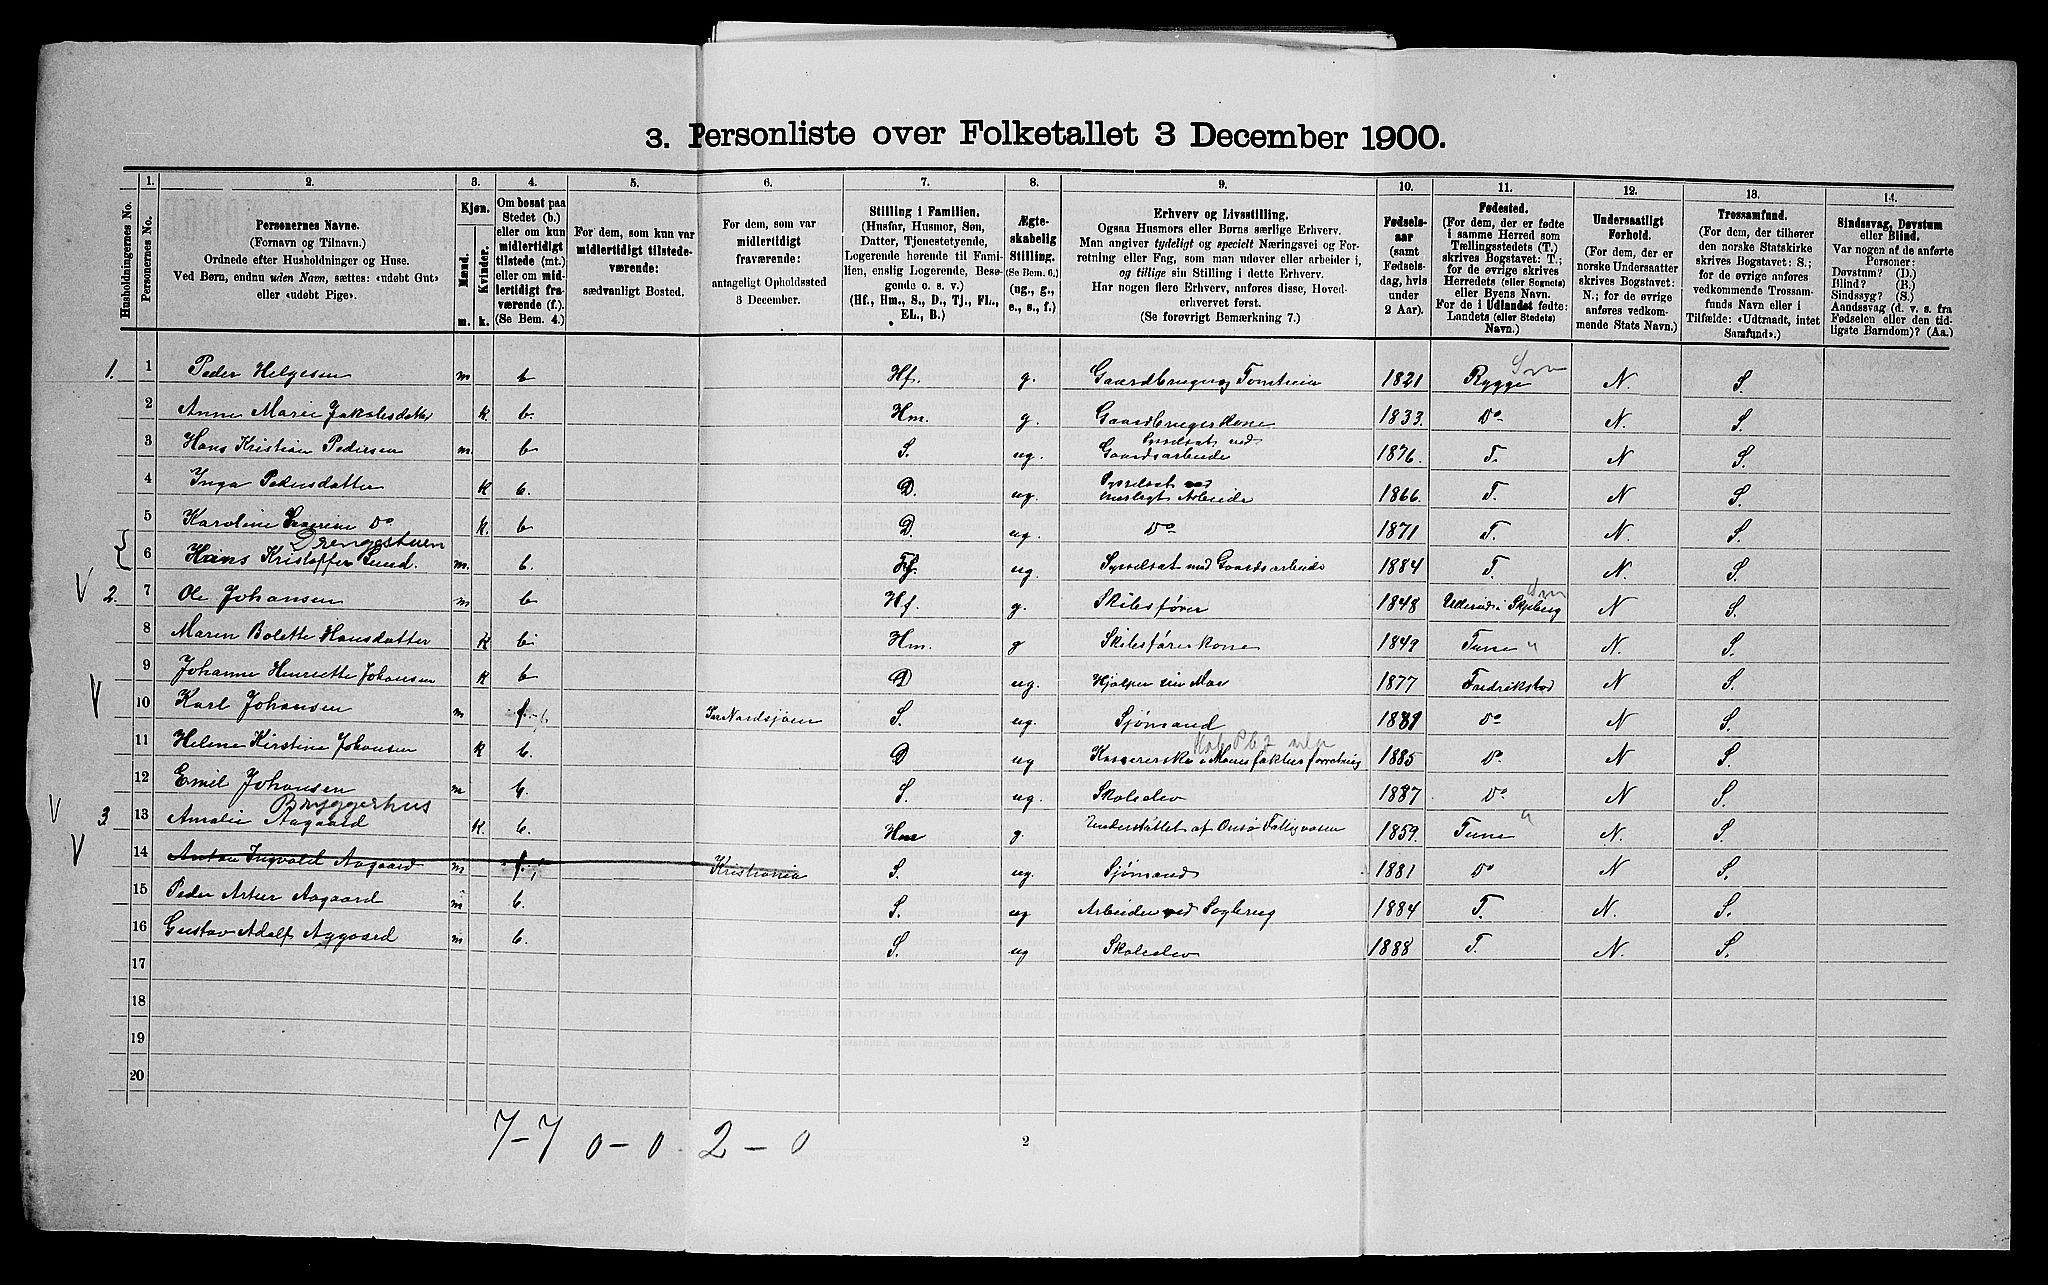 3. Personliste over Folketallet 3 December 1900.
1. 2. 3. 4. 5. 6. 7. 8. 9. 10. 11. 12. 13. 14.
Husholdningernes No.
Personernes No.
Personernes Navne.
(Fornavn og Tilnavn.)
Ordnede efter Husholdninger og Huse.
Ved Børn, endnu uden Navn, sættes: «udøbt Gut»
eller «udøbt Pige».
Kjøn.
Mænd.
Kvinder.
m. k.
Om bosat paa
Stedet (b.)
eller om kun
midlertidigt
tilstede (mt.)
eller om mid-
lertidigt fra-
værende (f.)
(Se Bem. 4.)
For dem, som kun var
midlertidigt tilstede-
værende:
sædvanligt Bosted.
For dem, som var
midlertidigt
fraværende:
antageligt Opholdssted
3 December.
Stilling i Familien.
(Husfar, Husmor, Søn,
Datter, Tjenestetyende,
Logerende hørende til Fami-
lien, enslig Logerende, Besø-
gende o. s. v.)
(Hf., Hm., S., D., Tj., FL.,
EL., B.)
Ægte-
skabelig
Stilling.
(Se Bem. 6.)
(ug., g.,
e., s., f.)
Erhverv og Livsstilling.
Ogsaa Husmors eller Børns særlige Erhverv.
Man angiver tydeligt og specielt Næringsvei og For-
retning eller Fag, som man udøver eller arbeider i,
og tillige sin Stilling i dette Erhverv.
Har nogen flere Erhverv, anføres disse, Hoved-
erhvervet først.
(Se forøvrigt Bemærkning 7.)
Fødsels-
aar
(samt
Fødsels-
dag, hvis
under
2 Aar).
Fødested.
(For dem, der er fødte
i samme Herred som
Tællingsstedets (T.)
skrives Bogstavet: T.;
for de øvrige skrives
Herredets (eller Sognets)
eller Byens Navn.
For de i Udlandet fødte:
Landets (eller Stedets)
Navn.)
Undersaatligt
Forhold.
(For dem, der er
norske Undersaatter
skrives Bogstavet:
N.; for de øvrige
anføres vedkom-
mende Stats Navn.)
Trossamfund.
(For dem, der tilhører
den norske Statskirke
skrives Bogstavet: S.;
for de øvrige anføres
vedkommende Trossam-
funds Navn eller i
Tilfælde: «Udtraadt, intet
Samfund».)
Sindssvag, Døvstum
eller Blind.
Var nogen af de anførte
Personer:
Døvstum? (D.)
Blind? (B.)
Sindssyg? (S.)
Aandssvag (d. v. s. fra
Fødselen eller den tid-
ligste Barndom)? (Aa.)
1. 1 Peder Helgesen m b Hf. g. Gaardbruger 1821 Rygge N. S.
2 Anne Marie Jakobsdatter k. b. Hm. g. Gaardbrugerkone 1833. Do N. S.
3 Hans Kristian Pedersen m. b S. ug. Sysselsat ved Gaardsarbeide 1876. T. N S.
4 Inga Pedersdatter k b. D. ug. Sysselsat med Arbeide 1866. T. N S.
5 Karoline Do k. b D. ug. Do 1871 T. N. S.
Drengestuen
6 Hans Kristoffer Lund. m. b. ug. Sysselsat med Gaardsarbeide 1884 T. N. S.
2. 7 Ole Johansen m b Hf. g. Skibsfører 1848 Skjeberg N S.
8 Maren Bolette Hansdatter k b. Hm. g Skibsførerkone 1849 Tune N. S.
9 Johanne Henriette Johansen k b D ug. Hjælper sin Mor 1877 Fredrikstad N S.
10 Karl Johansen m f. Nordsjøen S. ug. Sjømand 1881 Do N S.
11 Helene Kirstine Johansen k b. D ug Manufakturforretning 1885 Do N S.
12 Emil Johansen m b. S. ug. Skoleelev 1887 Do N S.
Bryggerhus
3 13 Amalie Aagaard k. b. Hm g. Understøttet af Onsø Fattigvæsen 1859. Tune N. S.
14 Anton Ingvald Aagaard m f. Kristiania S. ug. Sjømand 1881 Do N S.
15 Peder Artur Aagaard m b. S. ug Arbeider ved Sagbrug 1884 T. N. S.
16 Gustav Adolf Aagaard m b. S. ug Skoleelev 1888 T. N. S.
17
18
19
20
7-7 0-0 2-0
2